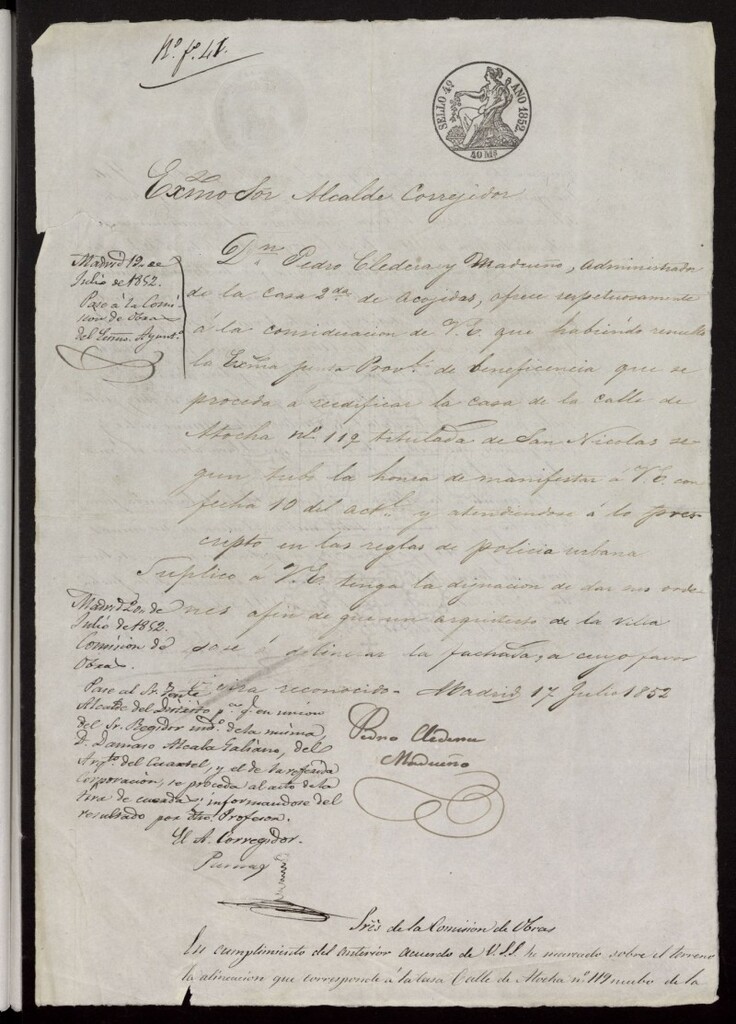 Nº fº 41.
SELLO 4º AÑO 1852
40 Ms
Exmo Sor Alcalde Correjidor
Dn Pedro Cledera y Madueño, administrador
de la casa 2da de acojidas, ofrece respetuosamente
á la consideracion de V.E. que habiendo resuelto
la Exma Junta Provl. de beneficencia que se
proceda a reedificar la casa de la calle de
Atocha nº 119 titulada de San Nicolas se-
gun tube la honra de manifestar á V.E. con
fecha 10 del actl. y atendiendose á lo pres-
cripto en las reglas de policia urbana
Suplico á V.E. tenga la dignacion de dar sus orde-
nes afin de que un arquitecto de la villa
pase á delinear la fachada, a cuyo favor
será reconocido. Madrid 17 Julio 1852
Pedro Cledera
Madueño
Madrid 19 de
Julio de 1852.
Pase á la Comi-
sion de Obras
del Excmo. Ayuntº.
Madrid 20 de
Julio de 1852.
Comision de
Obras.
Pase al Sr. Tente
Alcalde del Distrito pa. q. en union
del Sr. Regidor indº. de la misma,
D. Damaso Alcala Galiano, del
Arqto. del Cuartel, y el de la referida
Corporacion, se proceda al acto de la
tira de cuerdas; informandose del
resultado por dho. Profesor.
El A. Corregidor.
Sres de la Comision de Obras
En cumplimiento del anterior acuerdo de V.S.S. he marcado sobre el terreno
la alineacion que corresponde á la casa Calle de Atocha nº 119 nuebo de la